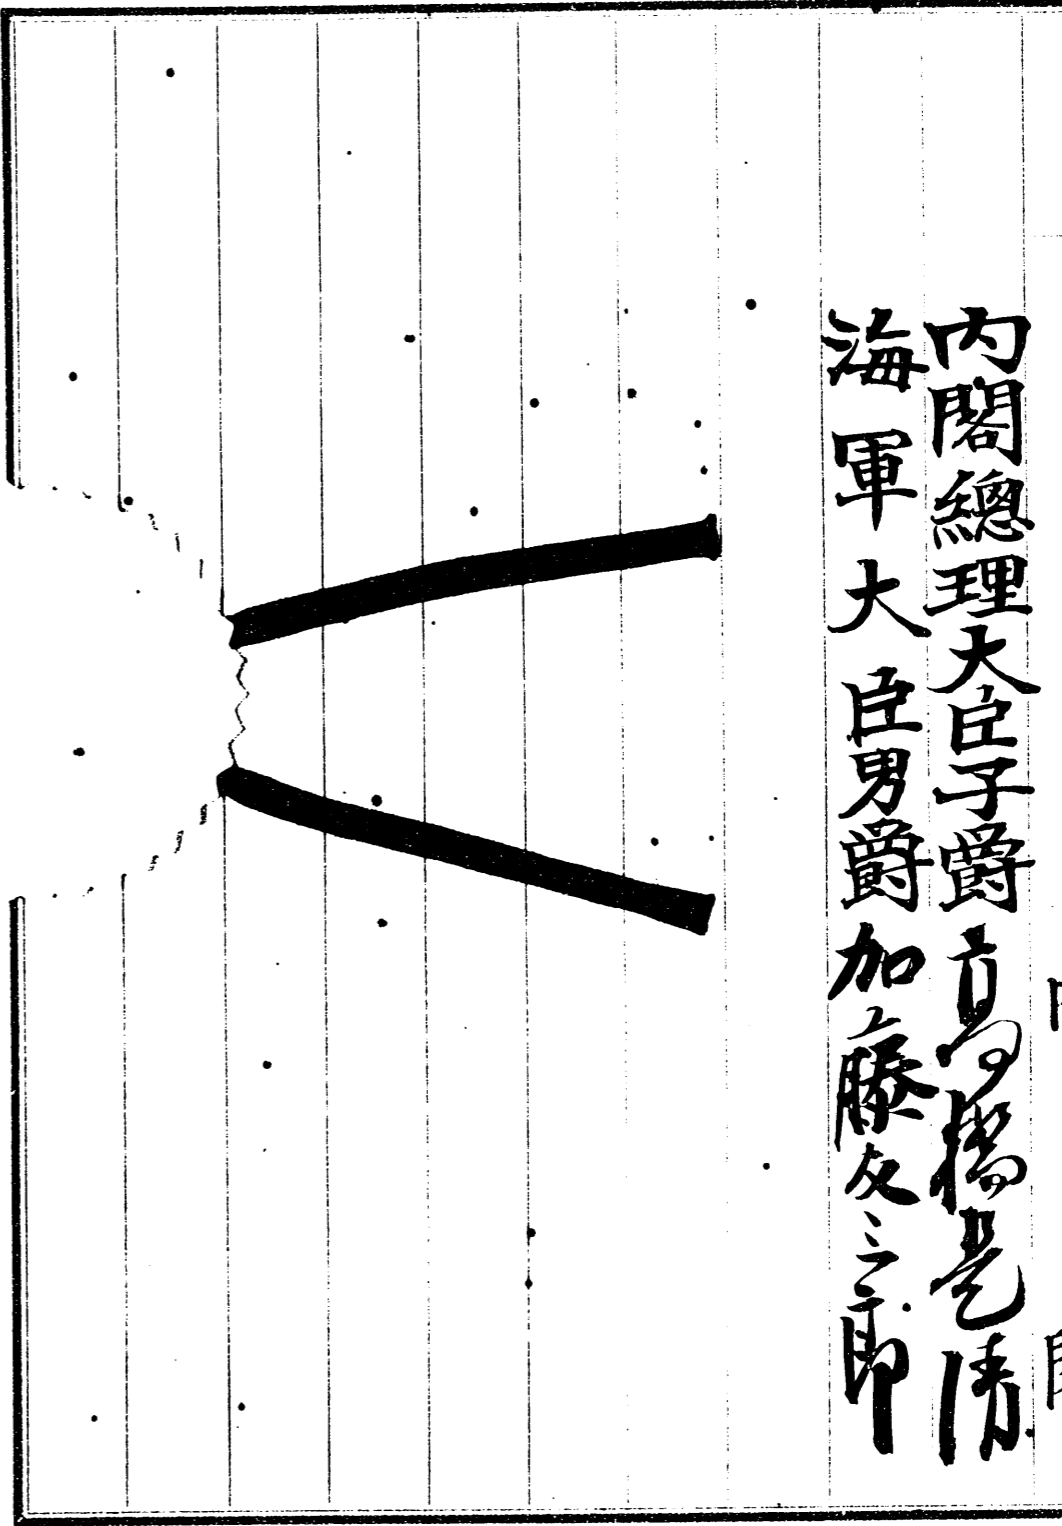 内閣總理大臣子爵高橋是清
海軍大臣男爵加藤友三郎